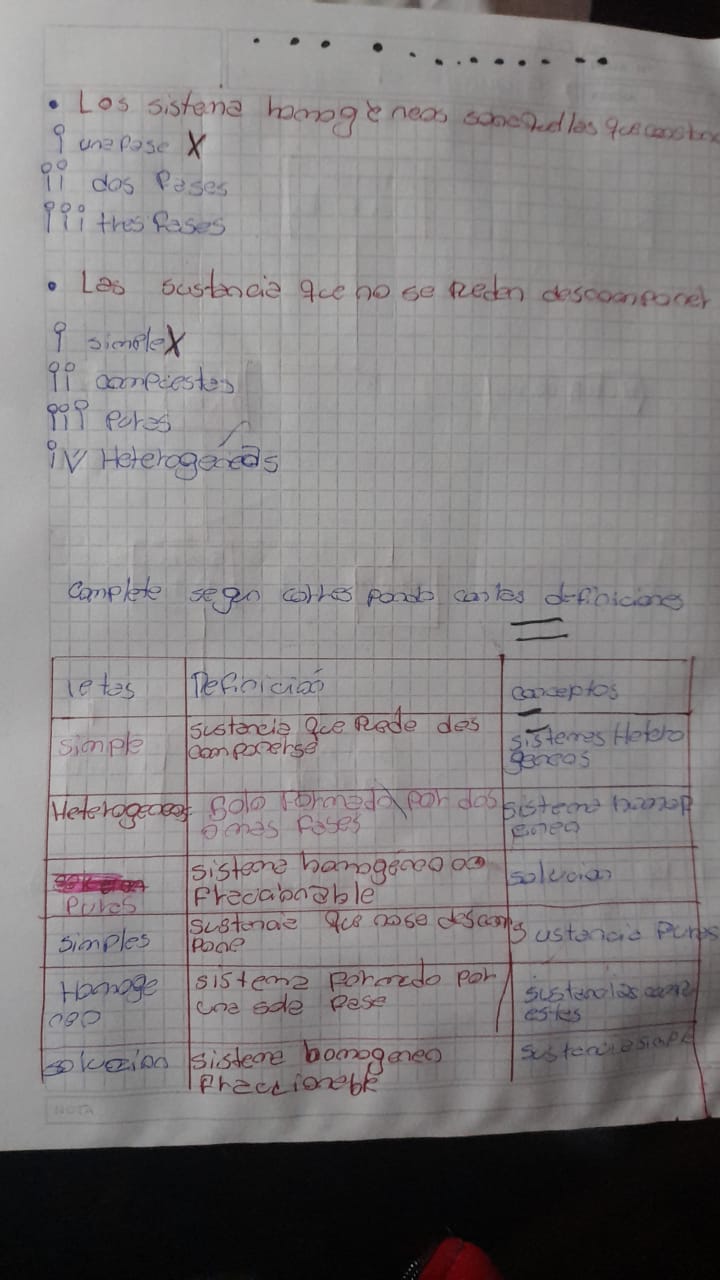 • Los sistema homogèneos son
i una fase X
ii dos fases
iii tres fases
• Las sustancia que no se peden descoonponer
i simple X
ii compuestas
iii puras
iv Heterogéneas
Complete segun corresponda con las definiciones
letas Definición conceptos
simple sustancia que puede des componerse sistemas Hetero géneos
Heterogeneos Solo formado por dos o mas fases sistema
Puras sistema homogéneo no fraccionable solucion
simples sustancia que no se descom pone sustancia puras
Homoge neo sistema formado por una sola fase sustancias
solucion sistema homogeneo fraccionable sustancia
NOTA